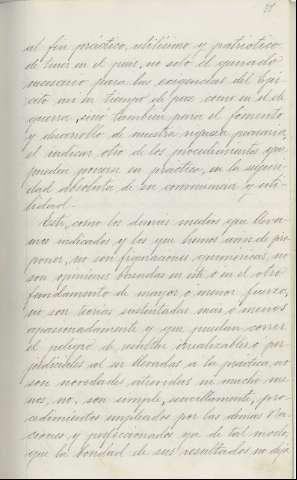 al fin práctico, utilísimo y patriótico
de tener en el pais, no solo el ganado
necesario para las exigencias del Ejér-
cito asi en tiempo de paz como en el de
guerra, sino tambien para el fomento
y desarrollo de nuestra riqueza pecuaria,
el indicar otro de los procedimientos que
pueden ponerse en práctica, en la seguri-
dad absoluta de su conveniencia y uti-
lidad.
Este, como los demás medios que lleva-
mos indicados y los que hemos aun de pro-
poner, no son figuraciones quiméricas, no
son opiniones basadas en este ó en el otro
fundamento de mayor ó menor fuerza,
no son teorías sustentadas mas ó menos
apasionadamente y que puedan correr
el peligro de resultar irrealizables ó per-
judiciales al ser llevadas á la práctica, no
son novedades atrevidas ni mucho me-
nos, no, son simple, sencillamente, pro-
cedimientos empleados por las demas Na-
ciones y perfeccionados ya de tal modo,
que la bondad de sus resultados no deja